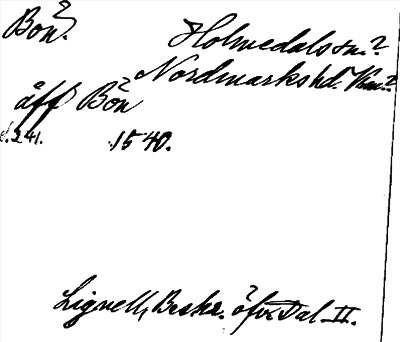 Bön? Holmedals sn.?
Nordmarks hd. Vrm.?
åff Bön
s. 241. 1540.
Lignell, Beskr. öfv. Dal II.